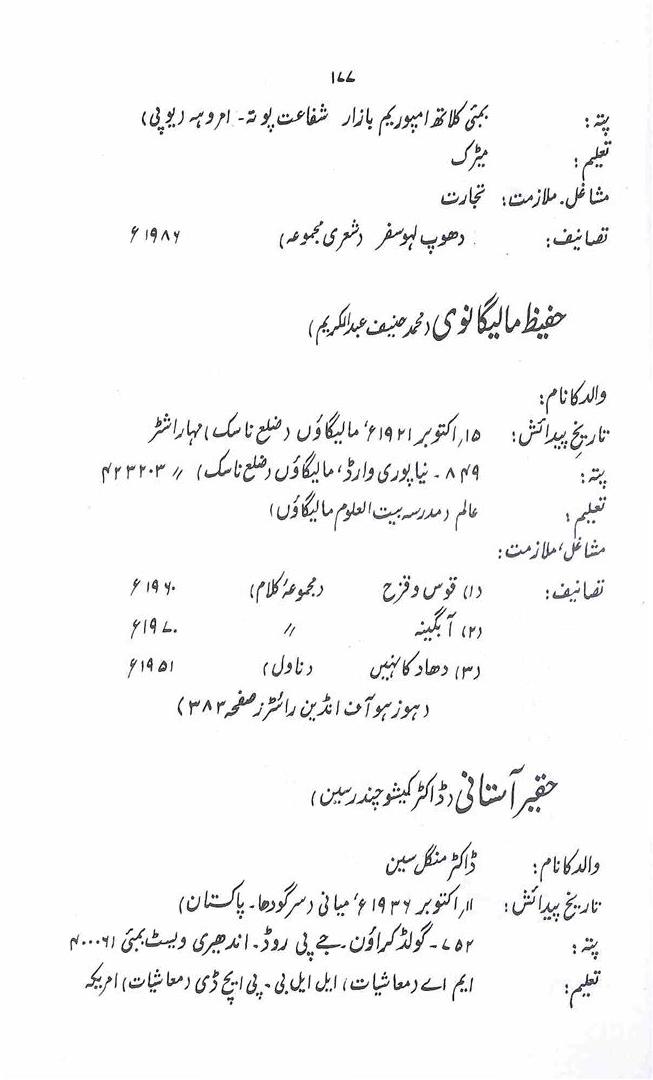 ۱۷۷
پتہ: بمبئی کلاتھ امپوریم بازار شفاعت پوتہ۔ امروہہ (یوپی)
تعلیم: میٹرک
مشاغل۔ ملازمت: تجارت
تصانیف: دھوپ لہو سفر (شعری مجموعہ) ۱۹۸۶ء
حفیظ مالیگانوی (محمد حنیف عبدالکریم)
والد کا نام:
تاریخ پیدائش: ۱۵؍اکتوبر ۱۹۲۱ء، مالیگاؤں (ضلع ناسک) مہاراشٹر
پتہ: ۸۴۹ ۔ نیاپوری وارڈ، مالیگاؤں (ضلع ناسک) ۴۲۳۲۰۳ //
تعلیم: عالم (مدرسہ بیت العلوم مالیگاؤں)
مشاغل، ملازمت:
تصانیف: (۱) قوس و قزح (مجموعۂ کلام) ۱۹۶۰ء
(۲) آبگینہ // ۱۹۷۰ء
(۳) دھاد کا نہیں (ناول) ۱۹۵۱ء
(ہوز ہو آف انڈین رائٹرز صفحہ ۳۸۳)
حقیر آستانی (ڈاکٹر کیشو چندر سین)
والد کا نام: ڈاکٹر منگل سین
تاریخ پیدائش: ۱۱؍اکتوبر ۱۹۳۶ء، میانی (سرگودھا۔ پاکستان)
پتہ: ۷۵۲۔ گولڈ کراؤن۔ جے پی روڈ۔ اندھیری ویسٹ بمبئی ۴۰۰۰۶۱
تعلیم: ایم اے (معاشیات)، ایل ایل بی۔ پی ایچ ڈی (معاشیات) امریکہ